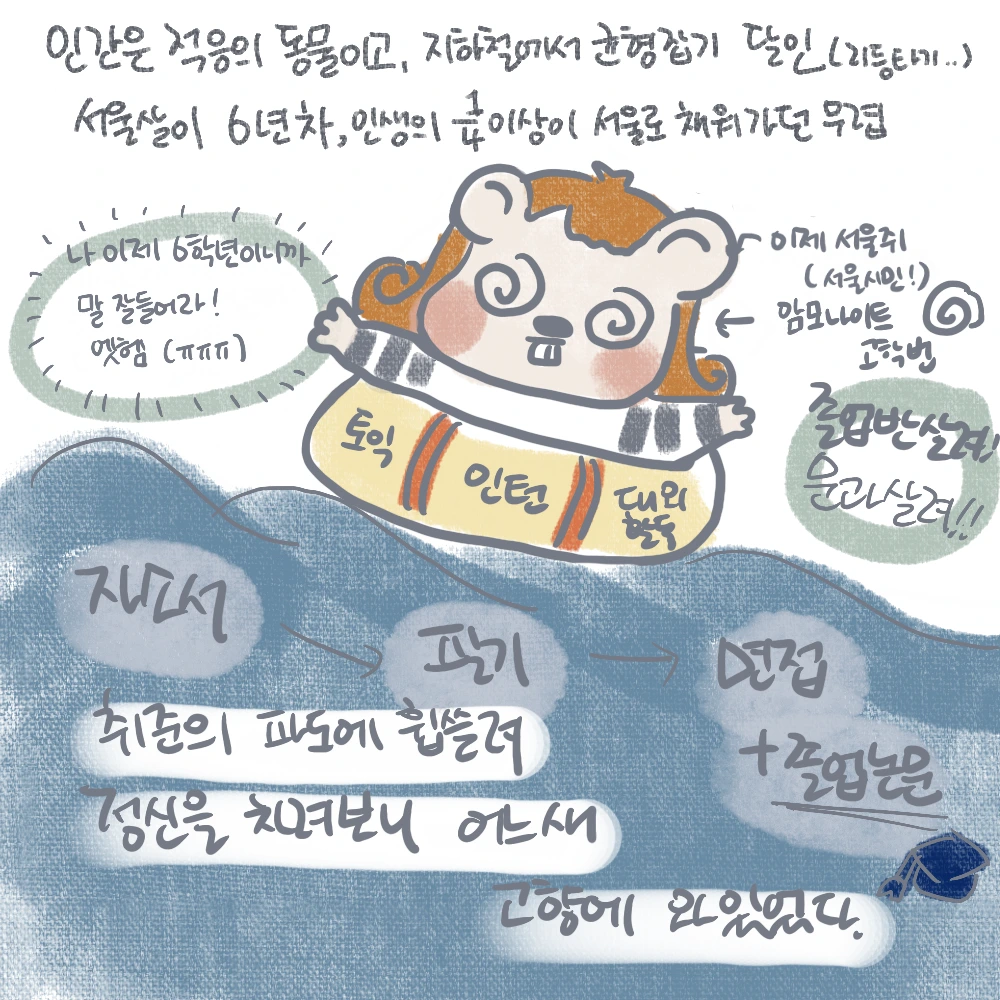 인간은 적응의 동물이고, 지하철에서 균형잡기 달인 (리듬타기..)
서울살이 6년차, 인생의 1/4 이상이 서울로 채워가던 무렵
나 이제 6학년이니까
말 잘들어라!
엣헴 (ㅠㅠㅠ)
이제 서울쥐
(서울시민!)
암모나이트
고학번
졸업반살려!
문과살려!!
토익
인턴
대외
활동
자소서
필기
면접
+ 졸업논문
취준의 파도에 휩쓸려
정신을 차려보니 어느새
고향에 와있었다.